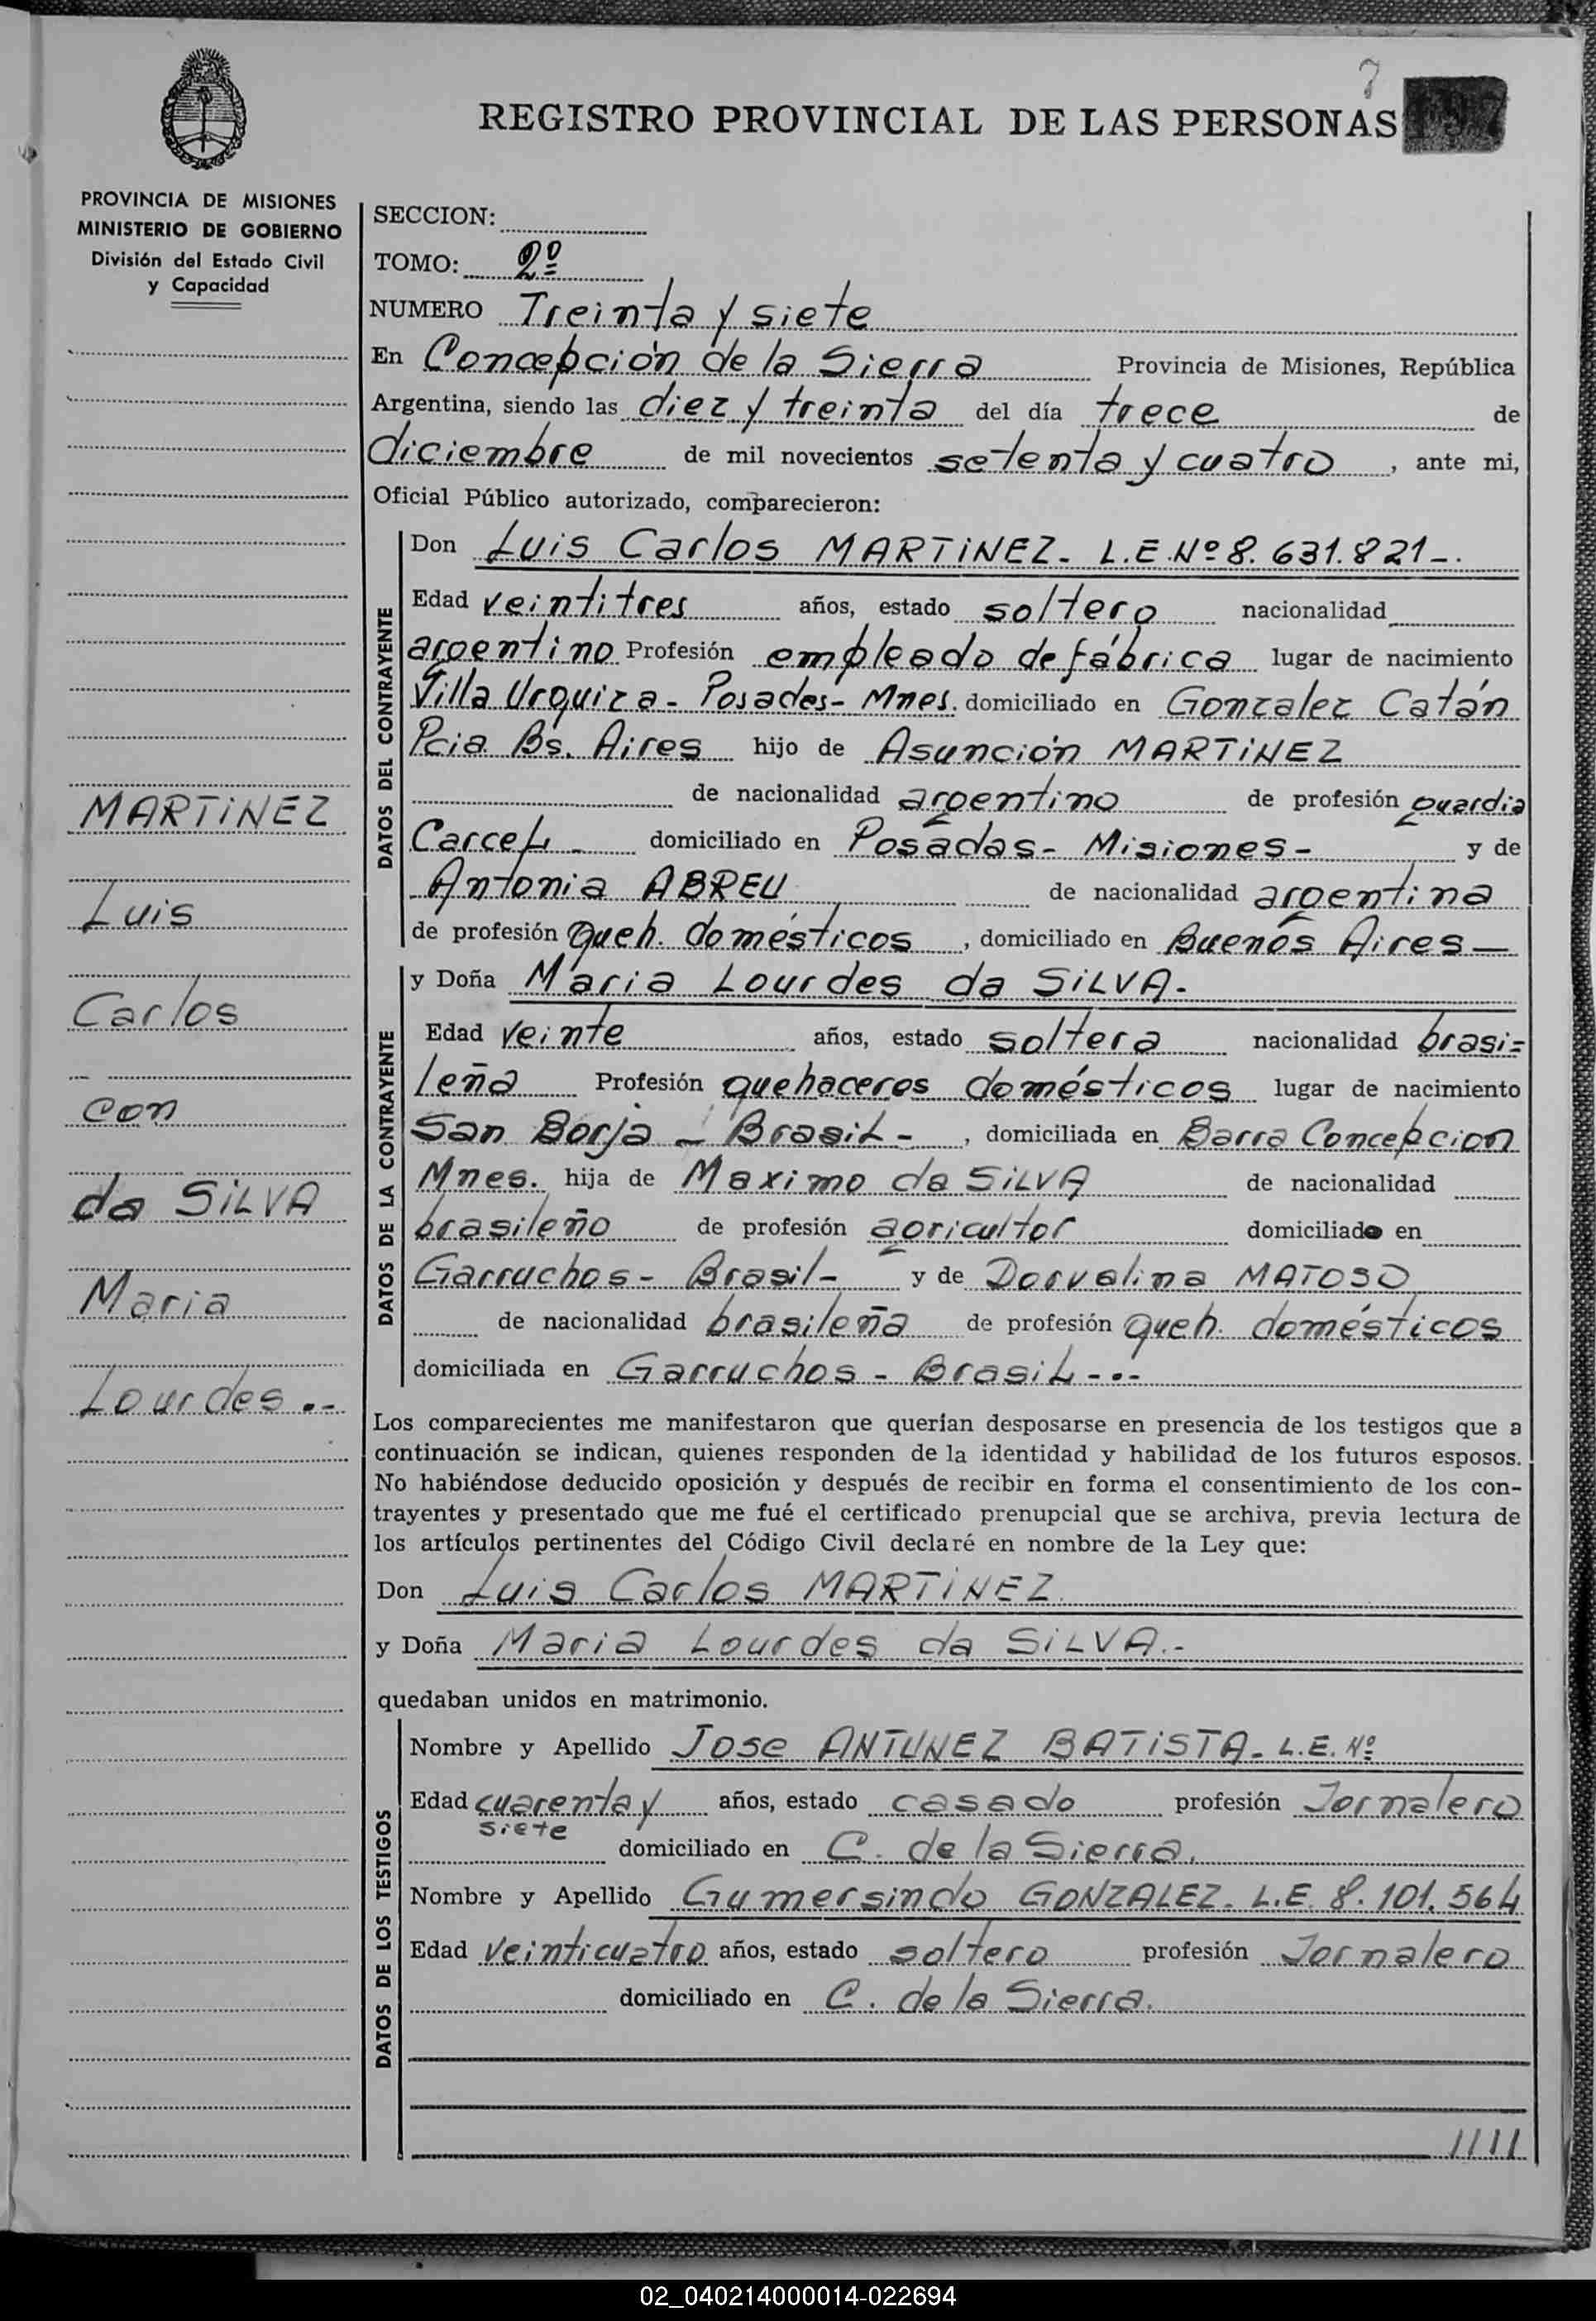 7
REGISTRO PROVINCIAL DE LAS PERSONAS
PROVINCIA DE MISIONES
MINISTERIO DE GOBIERNO
División del Estado Civil
y Capacidad
MARTINEZ
Luis
Carlos
con
da SILVA
Maria
Lourdes.-
SECCION:
TOMO: 2º
NUMERO Treinta y siete
En Concepción de la Sierra Provincia de Misiones, República
Argentina, siendo las diez y treinta del día trece de
diciembre de mil novecientos setenta y cuatro, ante mi,
Oficial Público autorizado, comparecieron:
DATOS DEL CONTRAYENTE
Don Luis Carlos MARTINEZ- L.E.Nº 8.631.821-.
Edad veintitres años, estado soltero nacionalidad
argentino Profesión empleado de fábrica lugar de nacimiento
Villa Urquiza- Posadas- Mnes. domiciliado en Gonzalez Catán
Pcia Bs. Aires hijo de Asunción MARTINEZ
de nacionalidad argentino de profesión guardia
Carcel- domiciliado en Posadas- Misiones- y de
Antonia ABREU de nacionalidad argentina
de profesión queh. domésticos, domiciliado en Buenos Aires—
DATOS DE LA CONTRAYENTE
y Doña Maria Lourdes da SILVA-
Edad veinte años, estado soltera nacionalidad brasi=
leña Profesión quehaceres domésticos lugar de nacimiento
San Borja - Brasil-, domiciliada en Barra Concepcion
Mnes. hija de Maximo da SILVA de nacionalidad
brasileño de profesión agricultor domiciliado en
Garruchos- Brasil- y de Dorvalina MATOSO
de nacionalidad brasileña de profesión queh. domésticos
domiciliada en Garruchos - Brasil-.-
Los comparecientes me manifestaron que querían desposarse en presencia de los testigos que a
continuación se indican, quienes responden de la identidad y habilidad de los futuros esposos.
No habiéndose deducido oposición y después de recibir en forma el consentimiento de los con-
trayentes y presentado que me fué el certificado prenupcial que se archiva, previa lectura de
los artículos pertinentes del Código Civil declaré en nombre de la Ley que:
Don Luis Carlos MARTINEZ
y Doña Maria Lourdes da SILVA.-
quedaban unidos en matrimonio.
DATOS DE LOS TESTIGOS
Nombre y Apellido Jose ANTUNEZ BATISTA- L.E. Nº
Edad cuarenta y siete años, estado casado profesión Jornalero
domiciliado en C. de la Sierra.
Nombre y Apellido Gumersindo GONZALEZ- L.E. 8.101.564
Edad veinticuatro años, estado soltero profesión Jornalero
domiciliado en C. de la Sierra.
1111
02_040214000014-022694